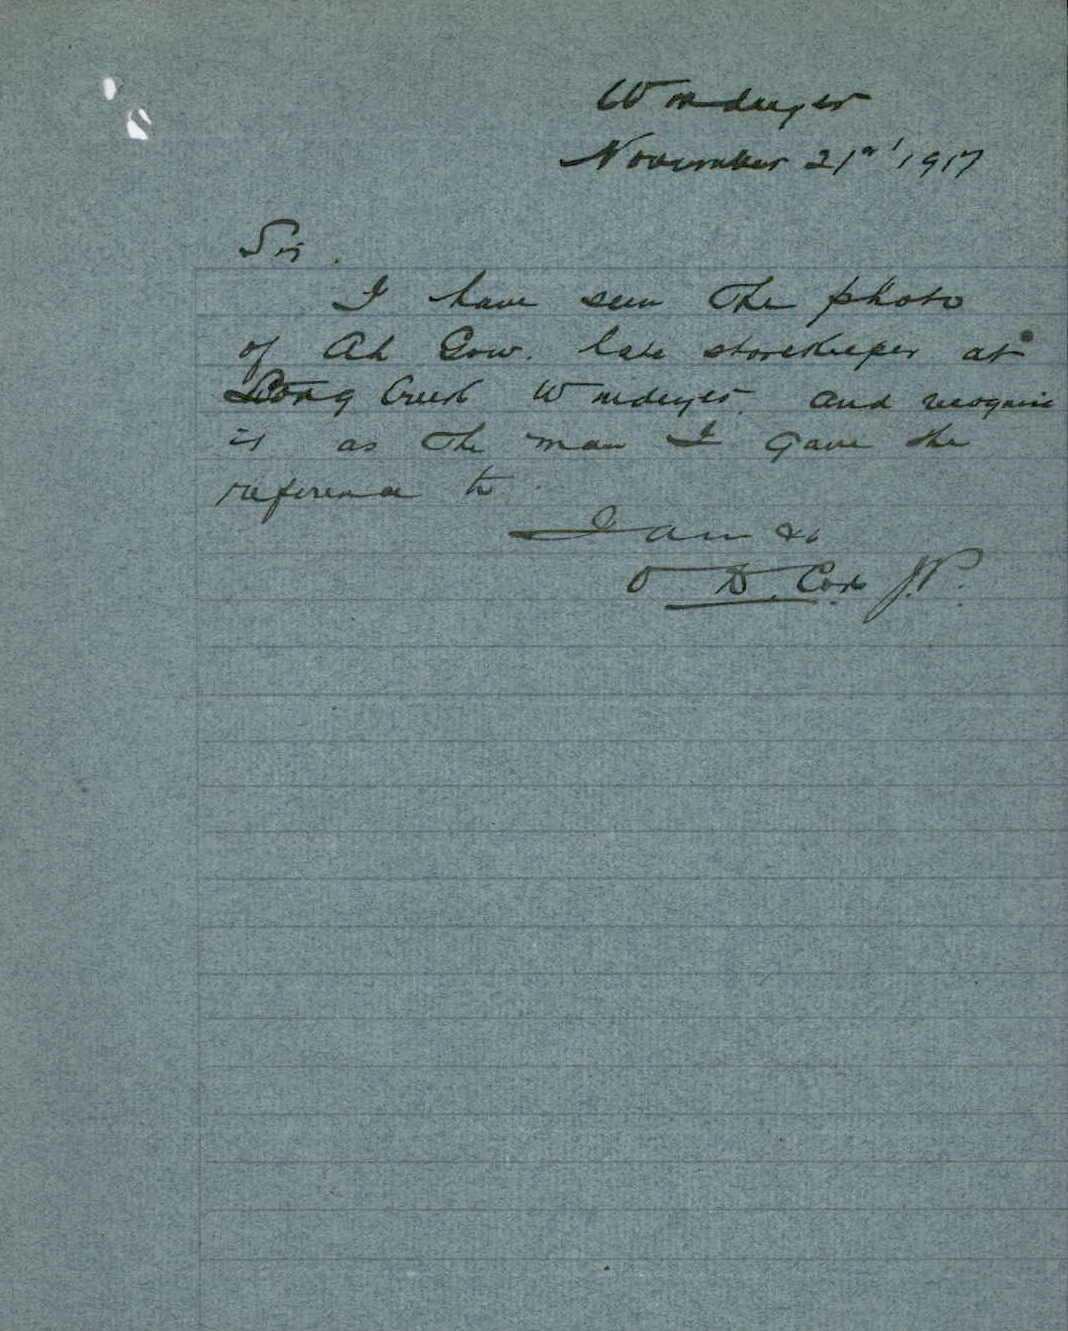 Windeyer
November 21st 1917
Sir.
I have seen the photo
of Ah Gow. late storekeeper at
Long Creek Windeyer. and recognise
it as the man I gave the
reference to.
I am &c
O D. Cox J.P.